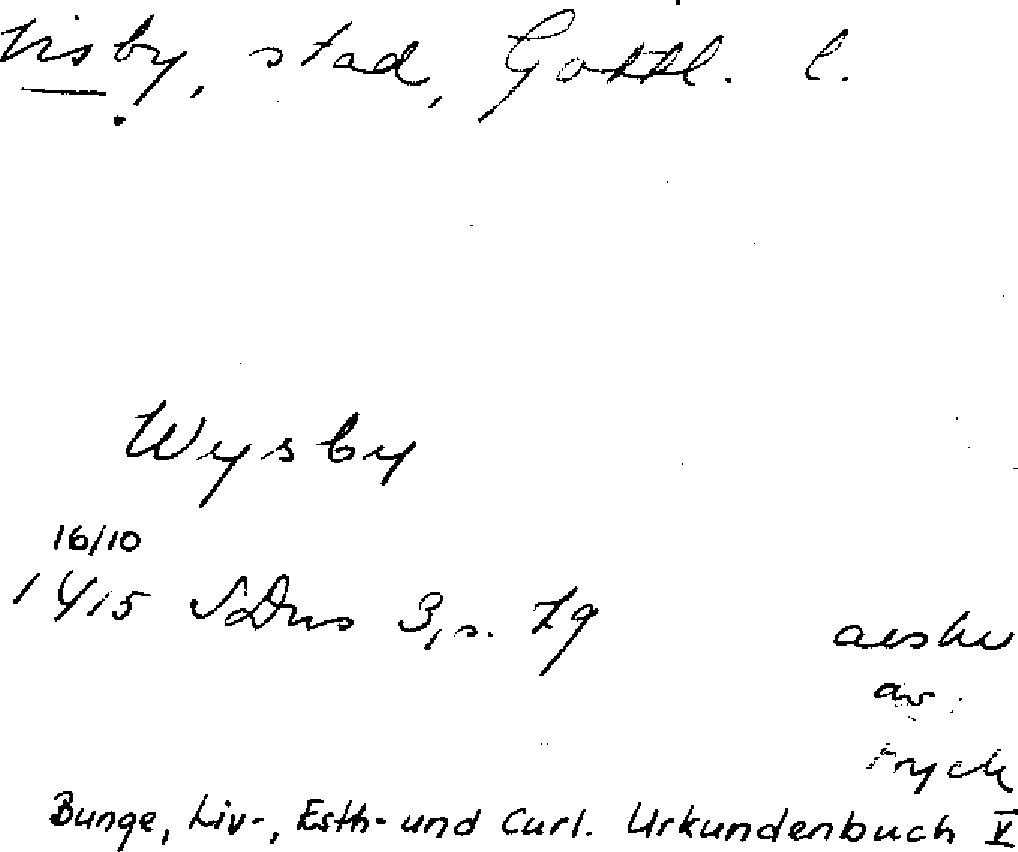 Visby, stad, Gottl. l.
Wysby
16/10
1415 SDns 3, s. 79
av
tryck
Bunge, Liv-, Esth- und Curl. Urkundenbuch V